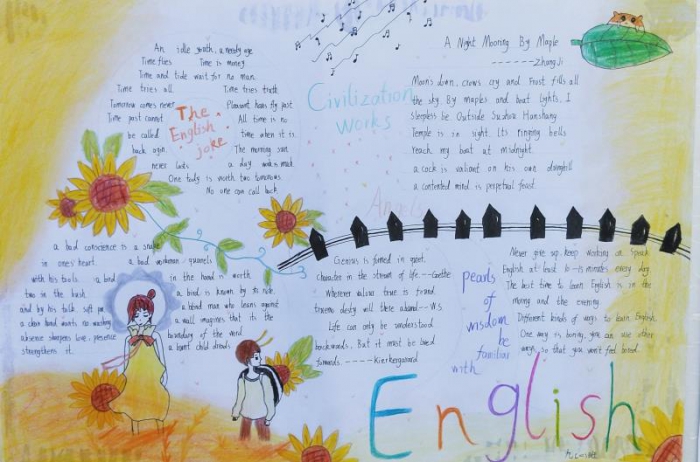 An idle youth, a needy age
Time flies Time is money
Time and tide wait for no man.
Time tries all Time tries truth
Tomorrow comes never Pleasant hours fly past
Time past cannot All time is no
be called time when it is
back again The morning sun
never lasts a day
One today is worth two tomorrows
No one can call back
The
English
joke
Civilization
works
Angels
A Night Mooring By Maple
Zhang Ji
Moon's down, crows cry and Frost fills all
the sky. By maples and boat lights, I
sleepless lie. Outside Suzhou Hanshang
Temple is in sight. Its ringing bells
reach my boat at midnight.
a cock is valiant on his own dunghill
a contented mind is perpetual feast
a bad conscience is a snake
in ones' heart. a bad workman quarrels
with his tools a bird in the hand is worth
two in the bush a bird is known by its note.
and by his talk a blind man who leans against
a clear hand wants no washing a wall imagines that its the
absence sharpens love, presence boundary of the world
strengthens it. a burnt child dreads
Genius is formed in quiet,
character in the stream of life --Goethe
Wherever valour true is found,
true modesty will there abound --W.S.
Life can only be understood
backwards, But it must be lived
forwards. -----Kierkergaard
pearls
of
wisdom
be
familiar
with
Never give up, keep working at. Speak
English at least 10-15 minutes every day.
The best time to learn English is in the
morning and the evening.
Different kinds of ways to learn English.
One way is boring, you can use other
ways, so that you won't feel bored.
English